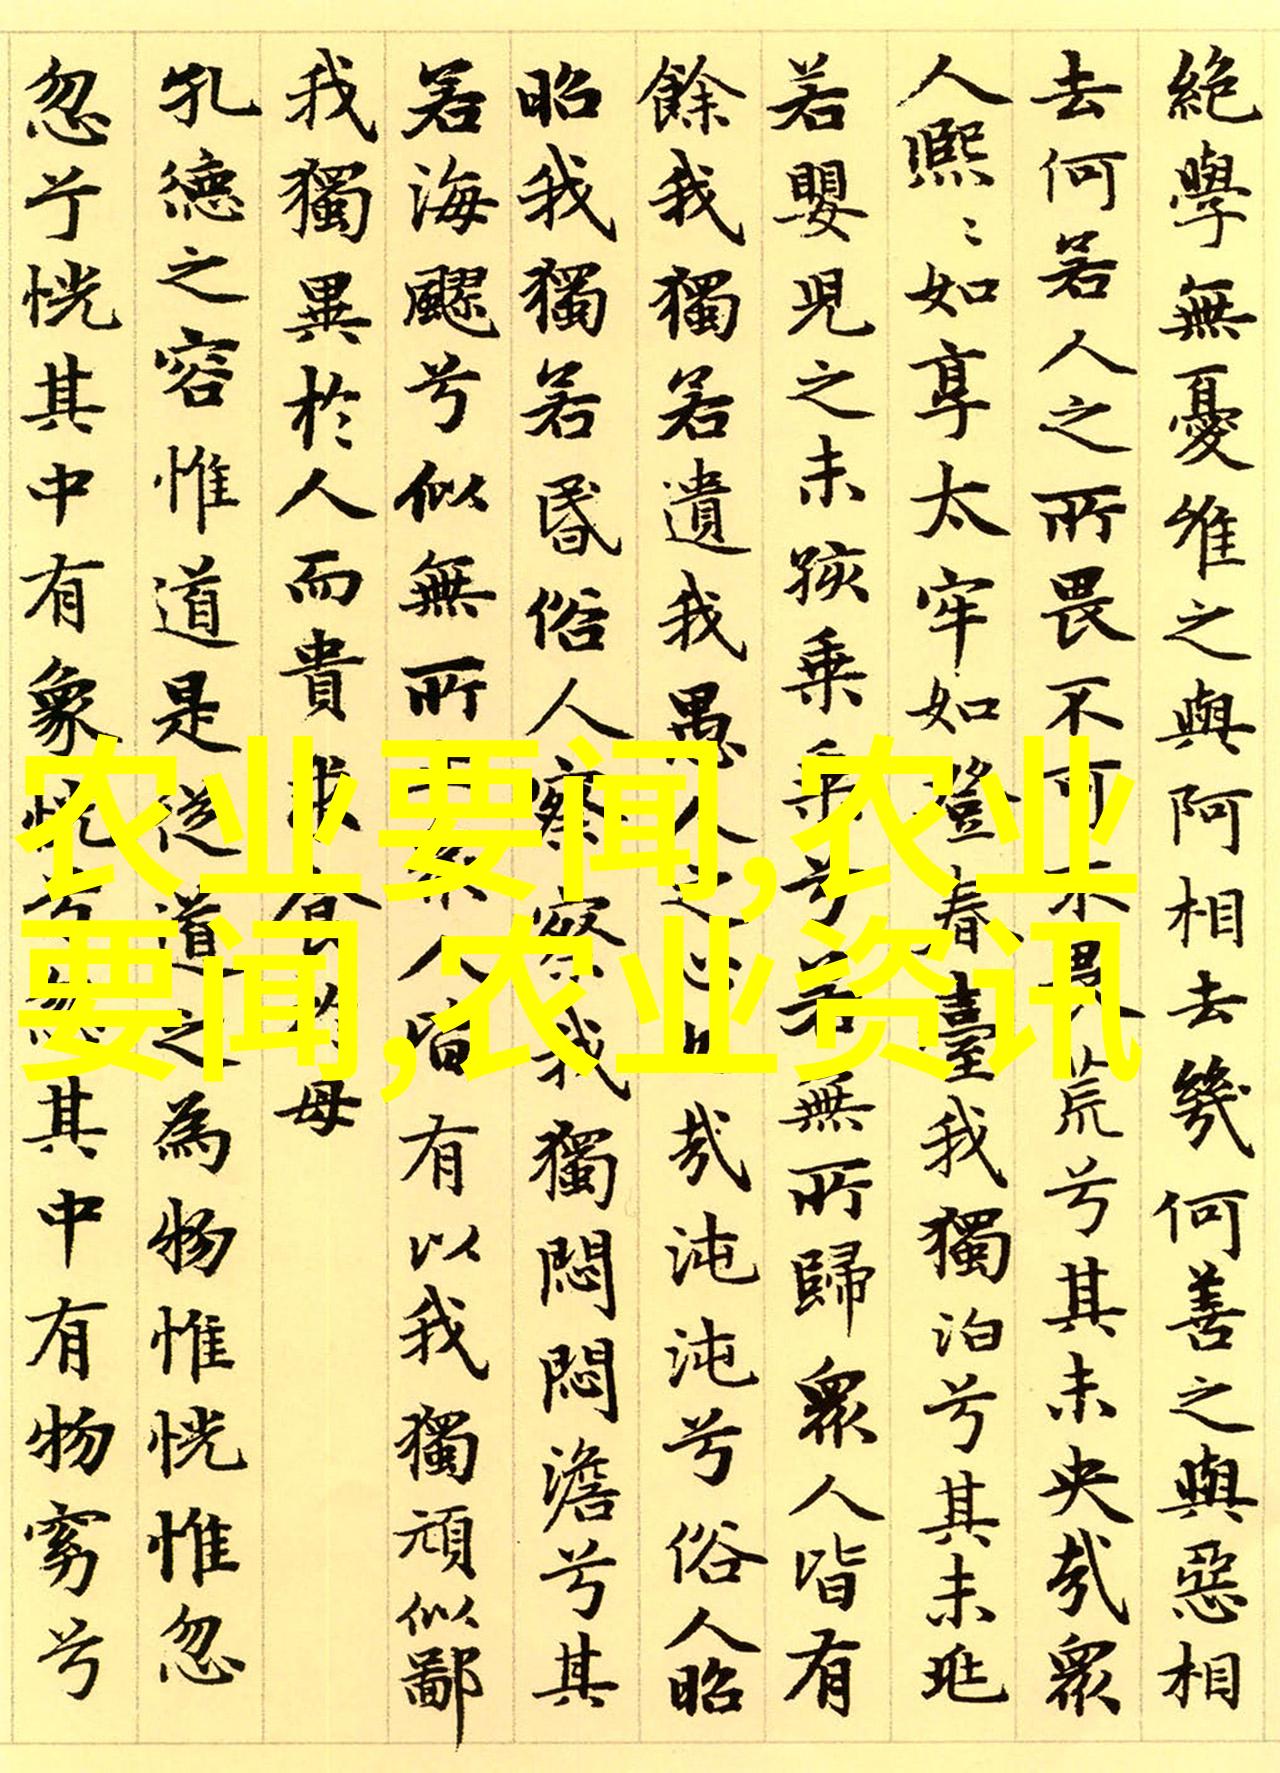 絶學無憂唯之與阿相去幾何善之與惡相
去何若人之所畏不可不畏荒兮其未央哉眾
人熙〻如享太牢如登春臺我獨泊兮其未兆
若嬰兒之未孩乗乗兮若無所歸眾人皆有
餘我獨若遺我愚人之心也哉沌沌兮俗人昭
昭我獨若昏俗人察察我獨悶悶澹兮其
若海飂兮似無所人皆有以我獨頑似鄙
我獨異於人而貴求食於母
孔德之容惟道是從道之為物惟恍惟忽
忽兮恍其中有象恍兮忽其中有物窈兮
农业要闻,农业
要闻,农业资讯